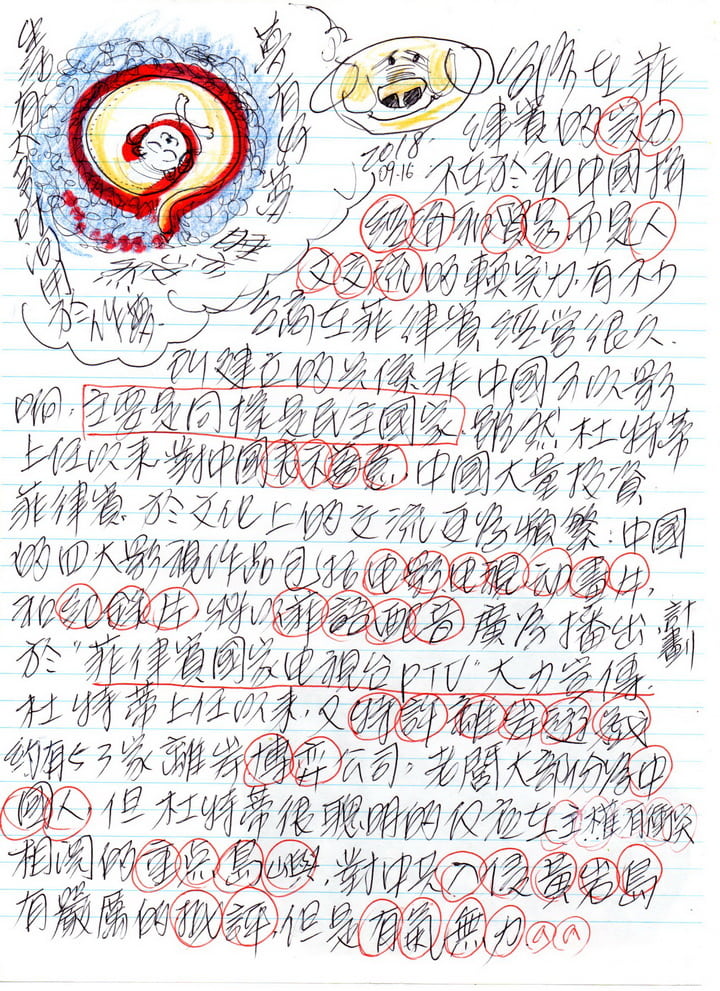 台灣在菲
律賓的實力
2018.
09.16
不在於和中國拚
經濟和貿易而是人
文交流的軟實力.有不少
台商在菲律賓經營很久.
所建立的關係非中國可以影
响.主要是同樣是民主國家.雖然杜特蒂
上任以來對中國表示善意.中國大量投資
菲律賓.於文化上的交流更為頻繁:中國
的四大影視作品包括电影电視动畫片,
和纪錄片將以菲語配音廣為播出,計劃
於"菲律賓國家电視台PTV"大力宣傳.
杜特蒂上任以來,又特許離岸
約有53家離岸博弈公司,老闆大部份為中
國人,但杜特蒂很聰明的仅在主權有衝突
相関的重点島嶼,對中共入侵黃岩島
有嚴厲的批評,但是有氣無力